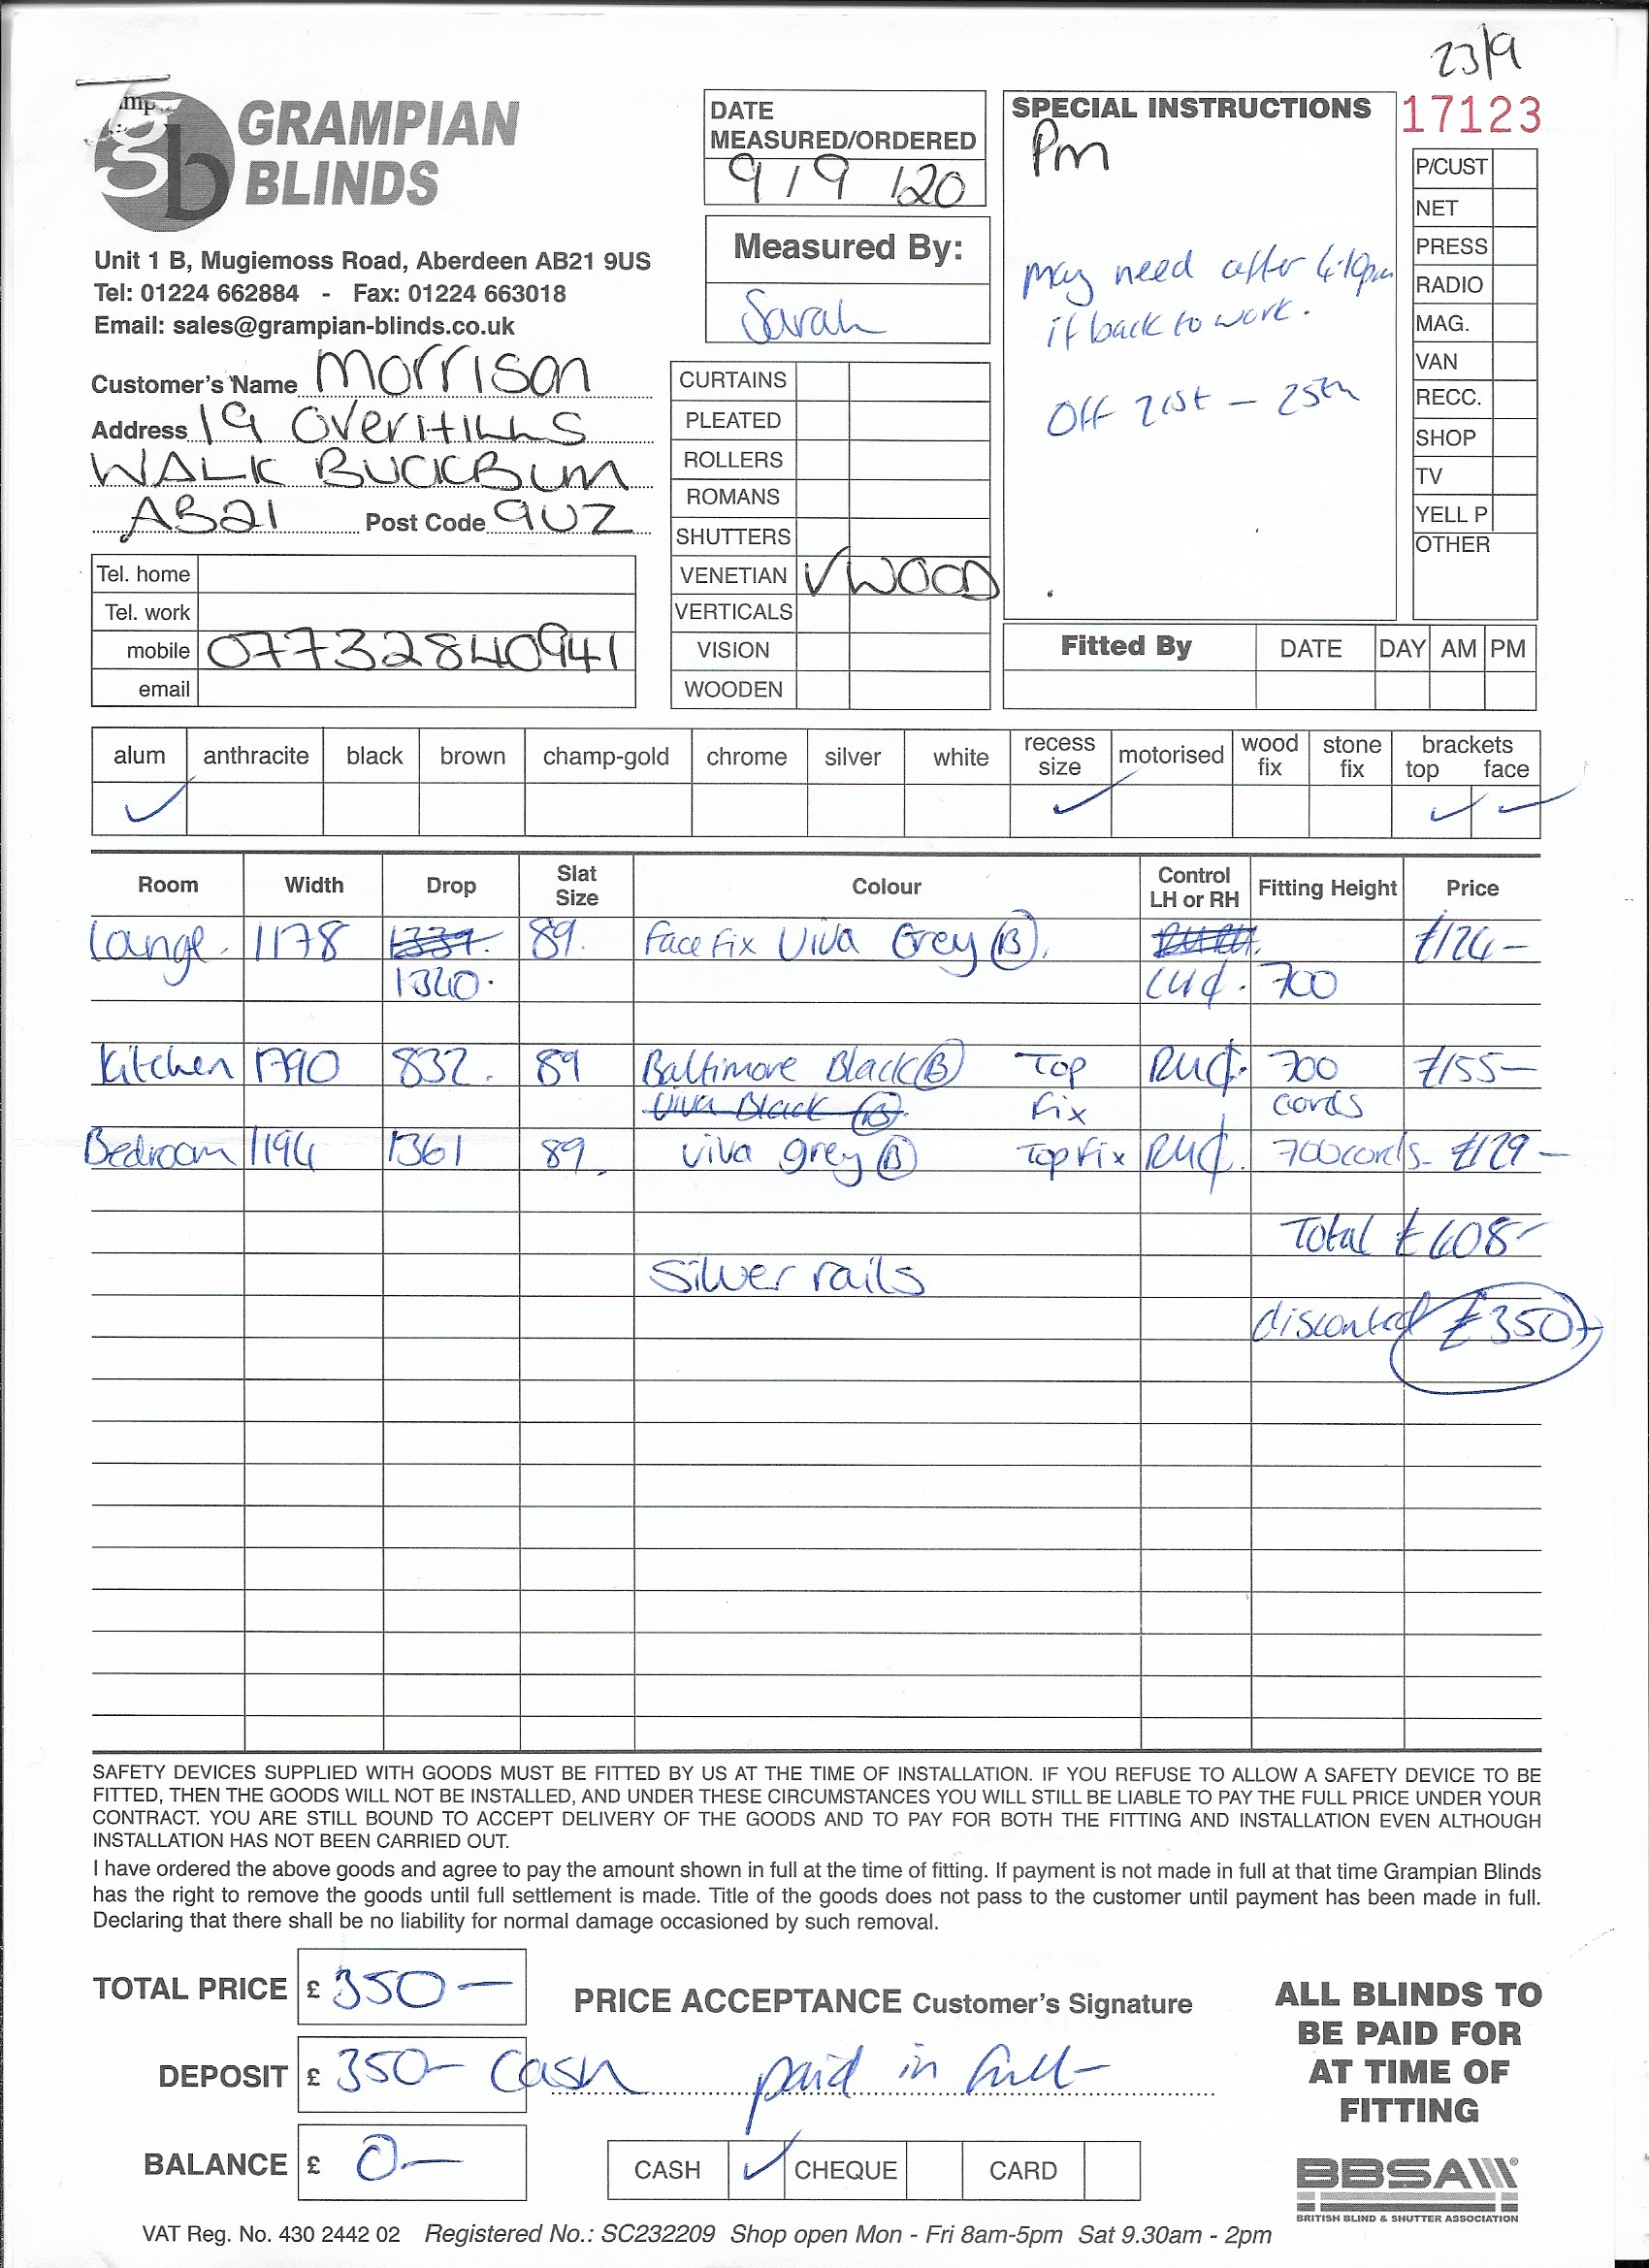 23/9
GRAMPIAN
BLINDS
Unit 1 B, Mugiemoss Road, Aberdeen AB21 9US
Tel: 01224 662884 - Fax: 01224 663018
Email: sales@grampian-blinds.co.uk
Customer's Name Morrison
Address 19 OVERHILLS
WALK BUCKBURN
AB21 Post Code 9UZ
Tel. home
Tel. work
mobile 07732840941
email
DATE
MEASURED/ORDERED
9/9/20
Measured By:
Sarah
CURTAINS
PLEATED
ROLLERS
ROMANS
SHUTTERS
VENETIAN ✓ WOOD
VERTICALS
VISION
WOODEN
SPECIAL INSTRUCTIONS
Pm
may need after 4.10pm
if back to work.
Off 21st - 25th
17123
P/CUST
NET
PRESS
RADIO
MAG.
VAN
RECC.
SHOP
TV
YELL P
OTHER
Fitted By DATE DAY AM PM
alum anthracite black brown champ-gold chrome silver white recess size motorised wood fix stone fix brackets top face
✓ ✓ ✓ ✓
Room Width Drop Slat Size Colour Control LH or RH Fitting Height Price
Lounge. 1178 1339. 89. Face fix Viva Grey (B). £124-
1340. 700
Kitchen 1790 832. 89 Baltimore Black (B) Top £155-
700
Viva Black (B). Fix cords
Bedroom 1194 1361 89. Viva grey (B) Top Fix 700cords. £129-
Total £408-
Silver rails
disconted £350-
SAFETY DEVICES SUPPLIED WITH GOODS MUST BE FITTED BY US AT THE TIME OF INSTALLATION. IF YOU REFUSE TO ALLOW A SAFETY DEVICE TO BE
FITTED, THEN THE GOODS WILL NOT BE INSTALLED, AND UNDER THESE CIRCUMSTANCES YOU WILL STILL BE LIABLE TO PAY THE FULL PRICE UNDER YOUR
CONTRACT. YOU ARE STILL BOUND TO ACCEPT DELIVERY OF THE GOODS AND TO PAY FOR BOTH THE FITTING AND INSTALLATION EVEN ALTHOUGH
INSTALLATION HAS NOT BEEN CARRIED OUT.
I have ordered the above goods and agree to pay the amount shown in full at the time of fitting. If payment is not made in full at that time Grampian Blinds
has the right to remove the goods until full settlement is made. Title of the goods does not pass to the customer until payment has been made in full.
Declaring that there shall be no liability for normal damage occasioned by such removal.
TOTAL PRICE £ 350-
DEPOSIT £ 350- Cash
BALANCE £ 0-
PRICE ACCEPTANCE Customer's Signature
paid in full-
CASH ✓ CHEQUE CARD
ALL BLINDS TO
BE PAID FOR
AT TIME OF
FITTING
BBSA
BRITISH BLIND & SHUTTER ASSOCIATION
VAT Reg. No. 430 2442 02 Registered No.: SC232209 Shop open Mon - Fri 8am-5pm Sat 9.30am - 2pm